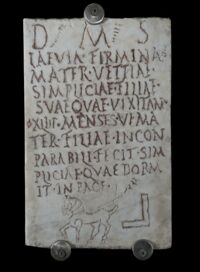 D M S
LAEVIA FIRMINA
MATER VETTIAE
SIMPLICIAE FILIAE
SVAE QVAE VIXIT AN
XIIII MENSES V FMA
TER FILIAE INCON
PARABILI FECIT SIM
PLICIA QVAE DORM
IT IN PACE